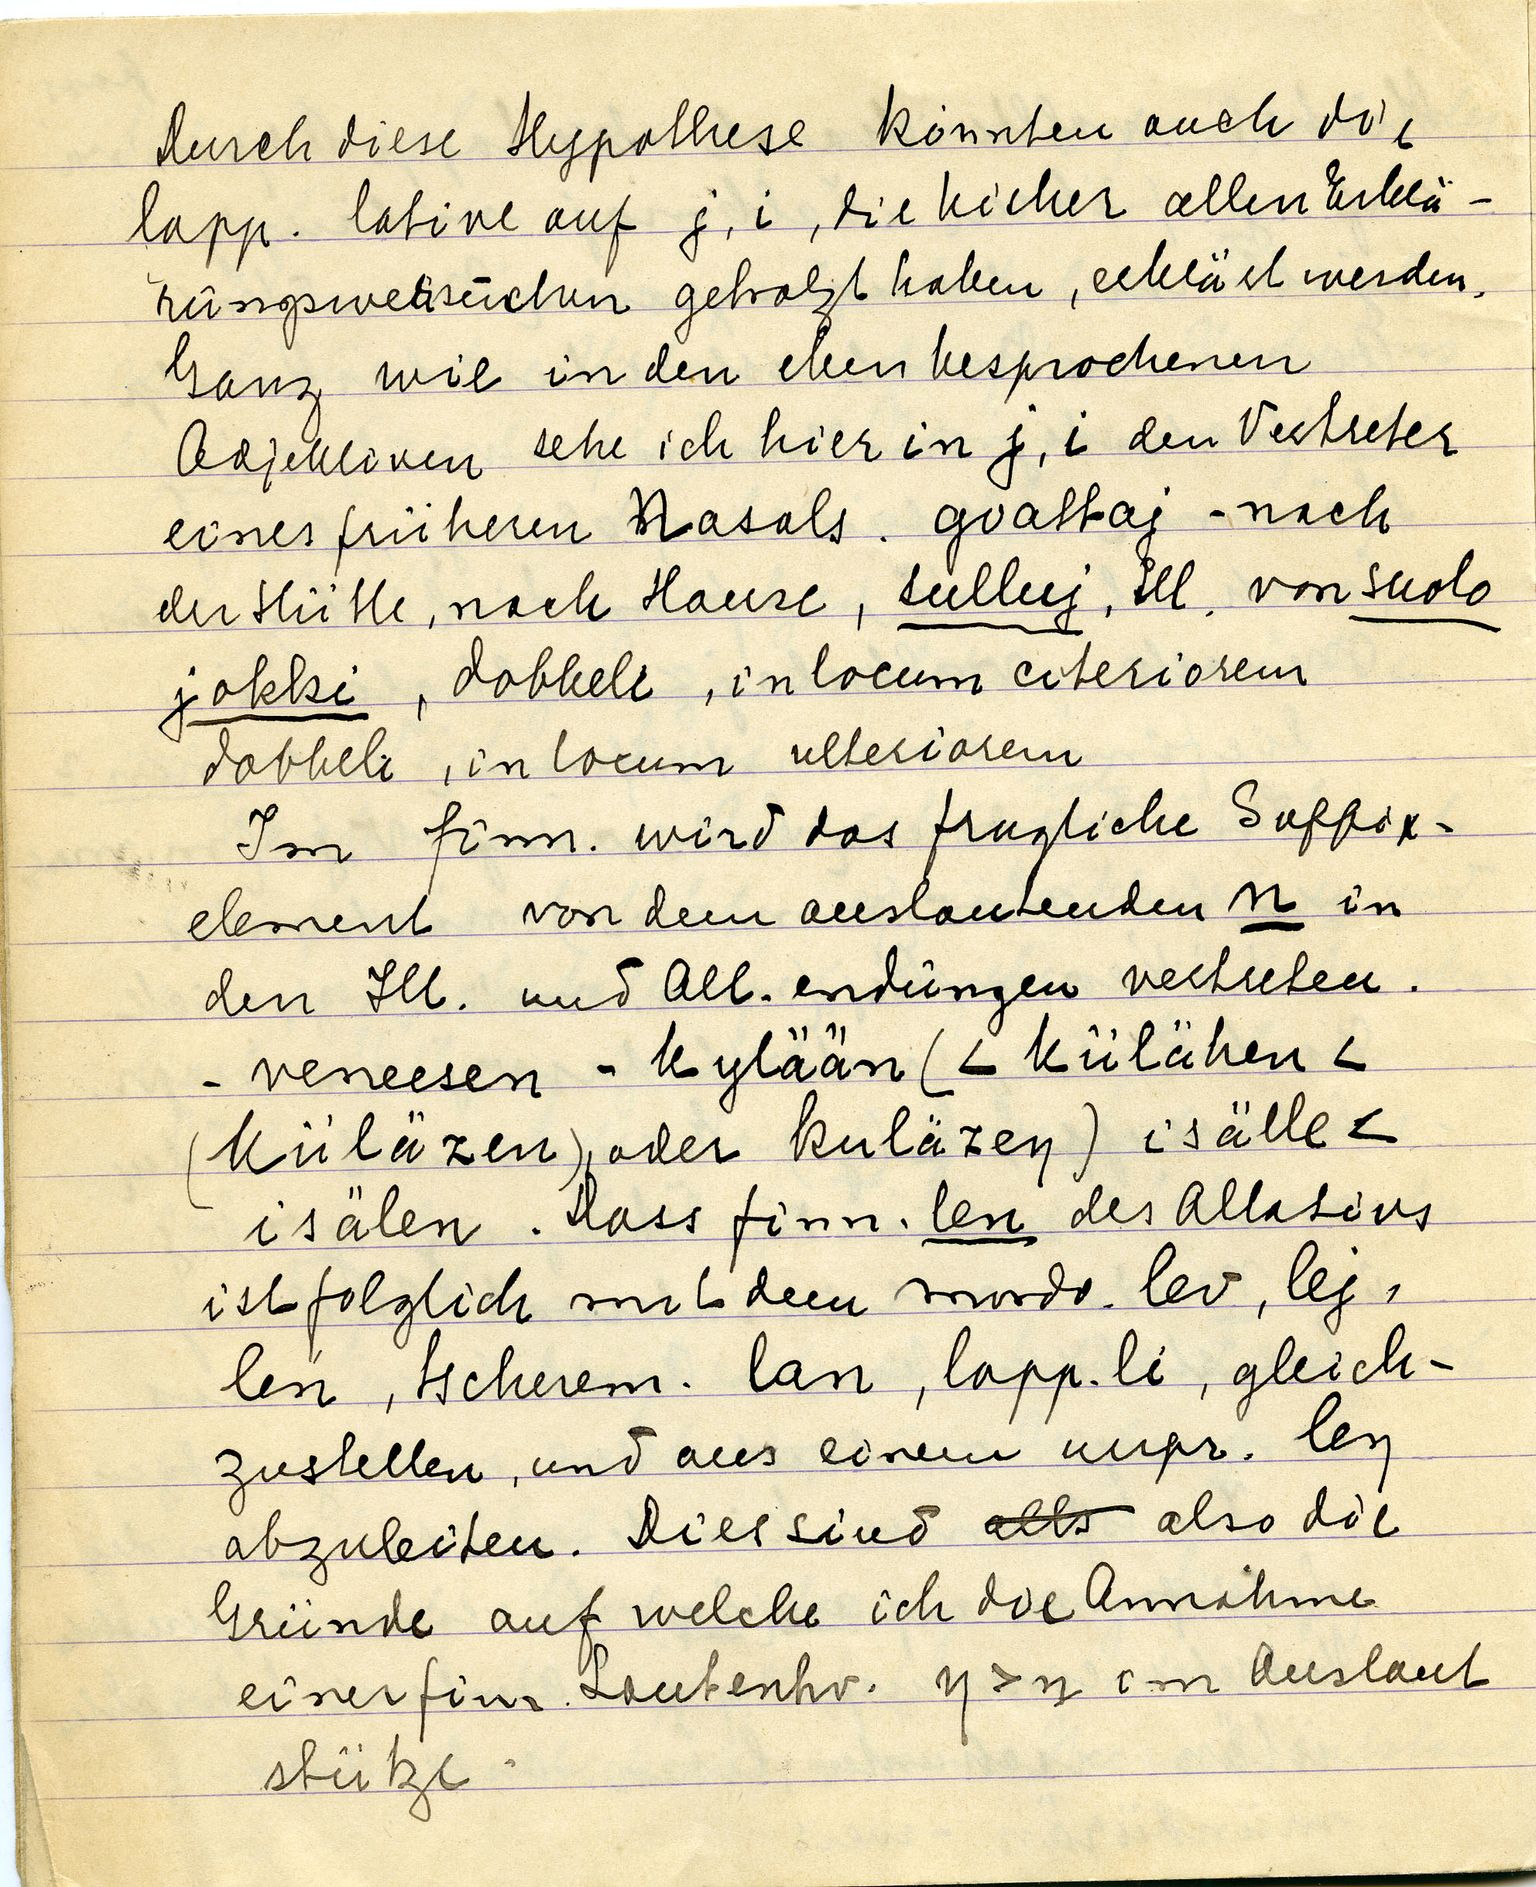 Durch diese Hypothese könnten auch die
lapp. lative auf j, i, die bisher allen Erklä-
rungsversuchen getrotzt haben, erklärt werden.
Ganz wie in den eben besprochenen
Adjektiven sehe ich hier in j, i den Vertreter
eines früheren Nasals. goattaj - nach
der Hütte, nach Hause, sulluj, Ill. von suolo
jokki, dobbeli, in locum citeriorem
dobbeli, in locum ulteriorem
Im finn. wird das fragliche Suffix-
element von dem auslautenden n in
den Ill. und All. endungen vertreten.
- veneesen - kylään (< külähen <
(küläzen), oder kuläzeŋ) isälle <
isälen. Dass finn. len des Allativs
ist folglich mit dem mordv. lev, lej,
leń, tscherem. lan, lapp. li, gleich-
zustellen, und aus einem urspr. leŋ
abzuleiten. Dies sind alls also die
Gründe auf welche ich die Annahme
einer finn. Lautentw. ŋ > n im Auslaut
stütze.